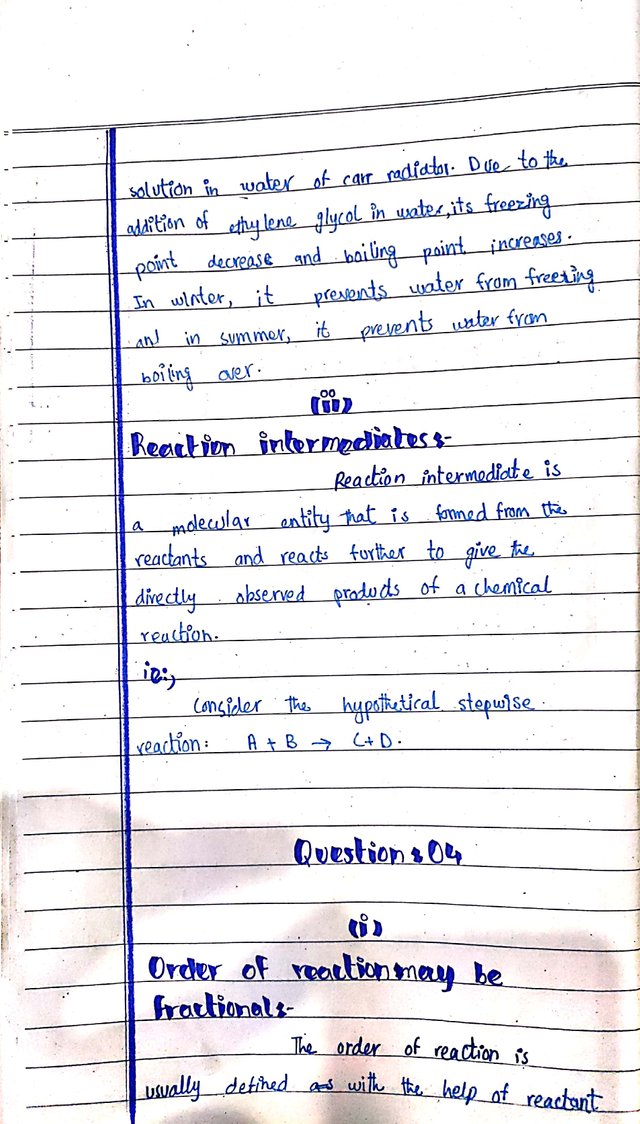 solution in water of carr radiator. Due to the
addition of ethylene glycol in water, its freezing
point decrease and boiling point increases.
In winter, it prevents water from freezing
and in summer, it prevents water from
boiling over.
(ii)
Reaction intermediates:-
Reaction intermediate is
a molecular entity that is formed from the
reactants and reacts further to give the
directly observed products of a chemical
reaction.
ie:,
Consider the hypothetical stepwise
reaction: A + B → C+D.
Question:04
(i)
Order of reaction may be
fractional:-
The order of reaction is
usually defined as with the help of reactant